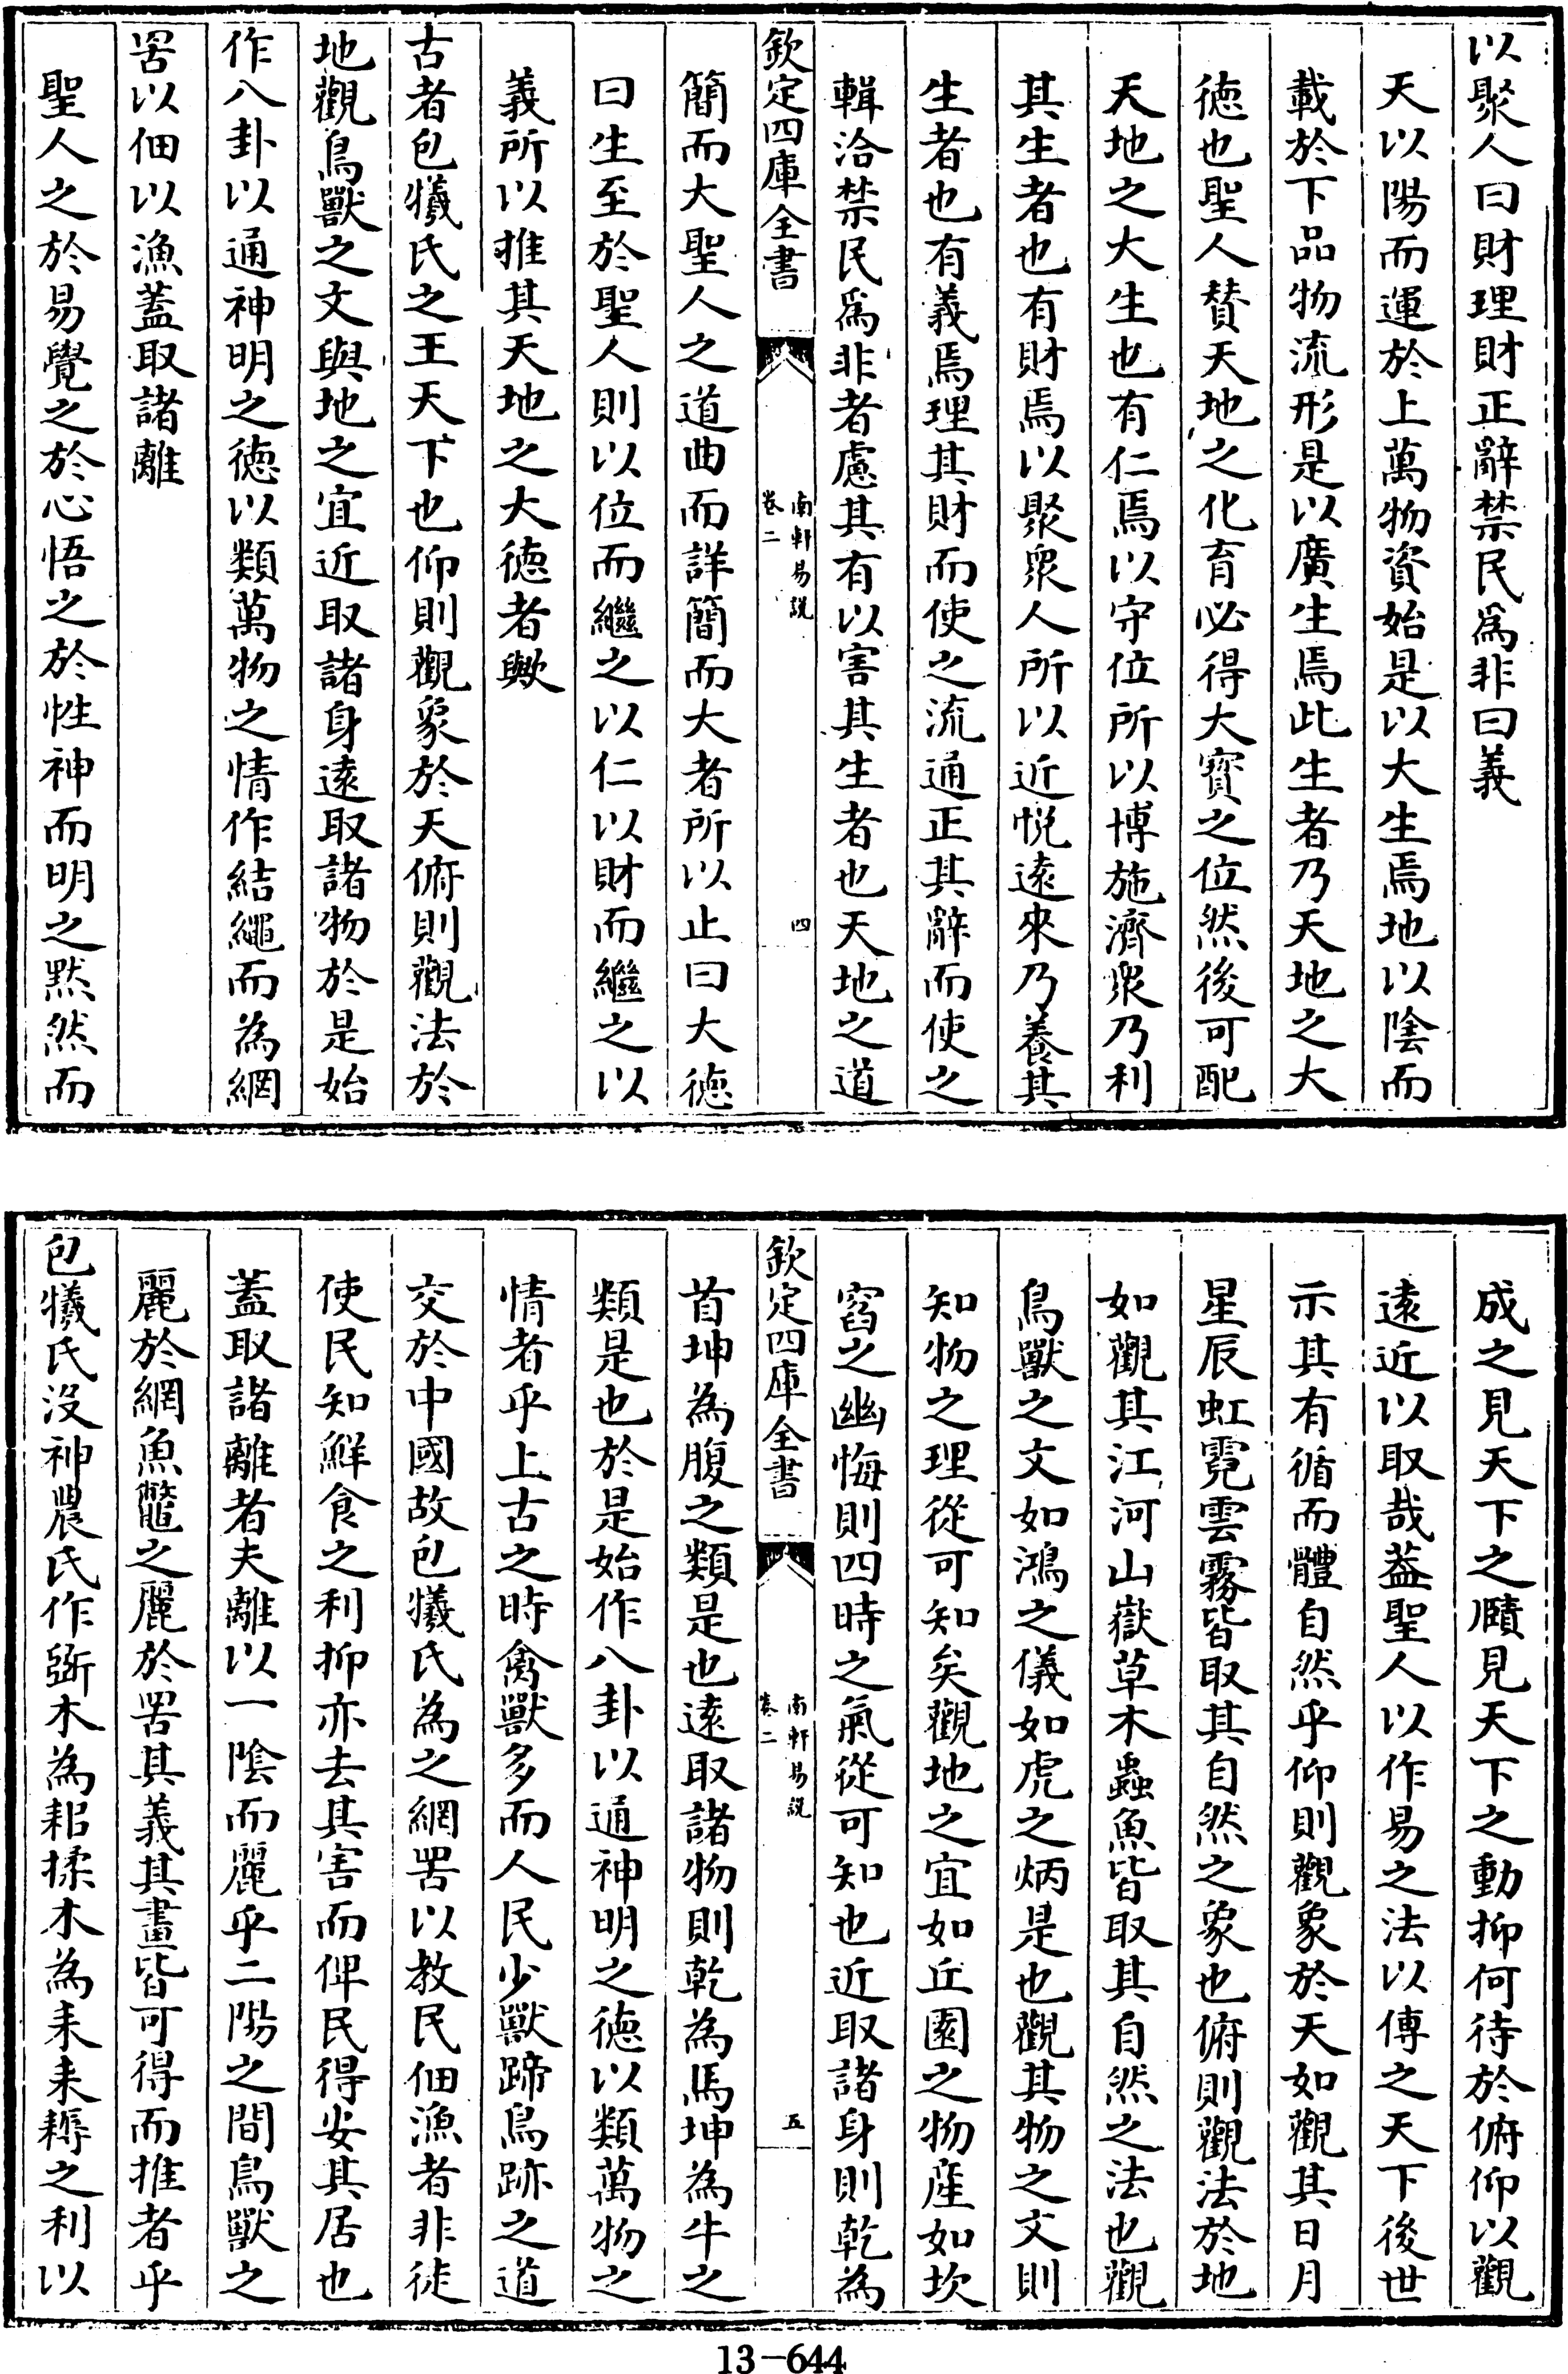 以聚人曰財理財正辭禁民爲非曰義
天以陽而運於上萬物資始是以大生焉地以陰而
載於下品物流形是以廣生焉此生者乃天地之大
徳也聖人賛天地之化育必得大寳之位然後可配
天地之大生也有仁焉以守位所以博施濟衆乃利
其生者也有財焉以聚衆人所以近悦逺來乃養其
生者也有義焉理其財而使之流通正其辭而使之
輯洽禁民爲非者慮其有以害其生者也天地之道
欽定四庫全書
南軒易説
卷二
四
簡而大聖人之道曲而詳簡而大者所以止曰大徳
曰生至於聖人則以位而繼之以仁以財而繼之以
義所以推其天地之大徳者歟
古者包犧氏之王天下也仰則觀象於天俯則觀法於
地觀鳥獸之文與地之宜近取諸身逺取諸物於是始
作八卦以通神明之徳以類萬物之情作結繩而為網
罟以佃以漁蓋取諸離
聖人之於易覺之於心悟之於性神而明之黙然而
成之見天下之賾見天下之動抑何待於俯仰以觀
逺近以取哉葢聖人以作易之法以傳之天下後世
示其有循而體自然乎仰則觀象於天如觀其日月
星辰虹霓雲霧皆取其自然之象也俯則觀法於地
如觀其江河山嶽草木蟲魚皆取其自然之法也觀
鳥獸之文如鴻之儀如虎之炳是也觀其物之文則
知物之理從可知矣觀地之宜如丘園之物産如坎
窞之幽悔則四時之氣從可知也近取諸身則乾為
欽定四庫全書
南軒易説
卷二
五
首坤為腹之類是也逺取諸物則乾為馬坤為牛之
類是也於是始作八卦以通神明之徳以類萬物之
情者乎上古之時禽獸多而人民少獸蹄鳥跡之道
交於中國故包犧氏為之網罟以教民佃漁者非徒
使民知鮮食之利抑亦去其害而俾民得安其居也
蓋取諸離者夫離以一陰而麗乎二陽之間鳥獸之
麗於網魚鼈之麗於罟其義其畫皆可得而推者乎
包犧氏沒神農氏作斵木為耜揉木為耒耒耨之利以
13-644